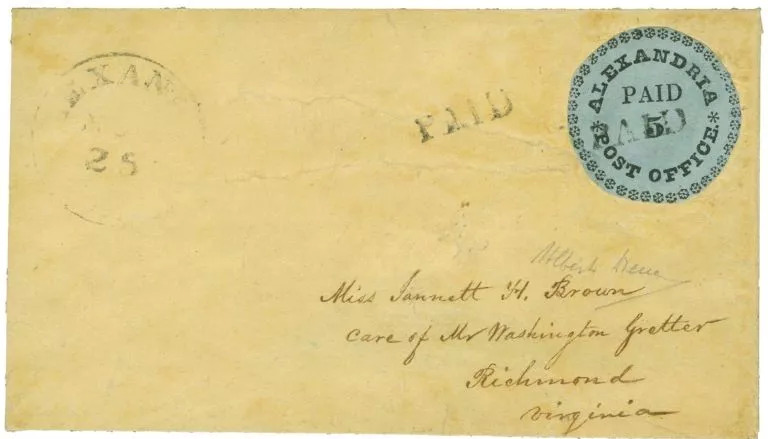 EXAN
25
PAID
* ALEXANDRIA *
PAID
5
PAID
POST OFFICE.
Miss Jannett H. Brown
Care of Mr Washington Gretter
Richmond
Virginia